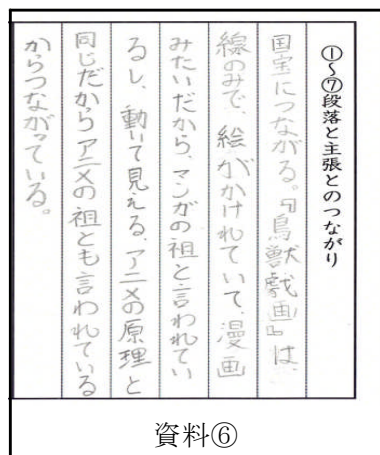 ①～⑦段落と主張とのつながり
国宝につながる。『鳥獣戯画』は、
線のみで、絵がかけれていて、漫画
みたいだから、マンガの祖と言われてい
るし、動いて見える、アニメの原理と
同じだからアニメの祖とも言われている
からつながっている。
資料⑥